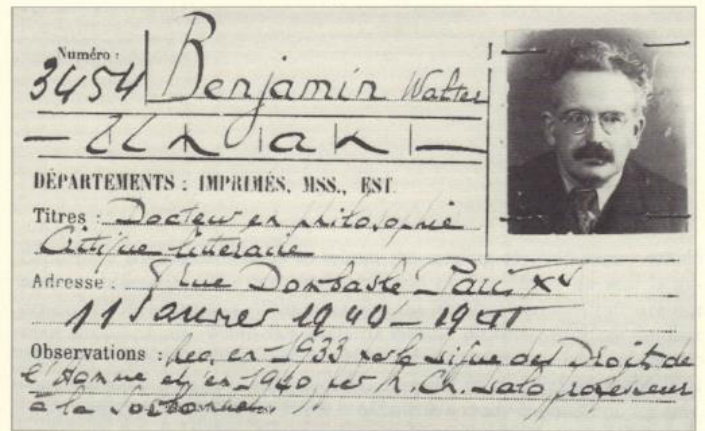 Numéro :
3454 Benjamin Walter
— Un an —
DÉPARTEMENTS : IMPRIMÉS, MSS., EST.
Titres : Docteur en philosophie
Critique littéraire
Adresse : rue Dombasle Paris XV
11 Janvier 1940 – 1941
Observations : Rec. en 1933 par la Ligue des Droits de
l'Homme et en 1940 par M. Ch. Lalo professeur
à la Sorbonne